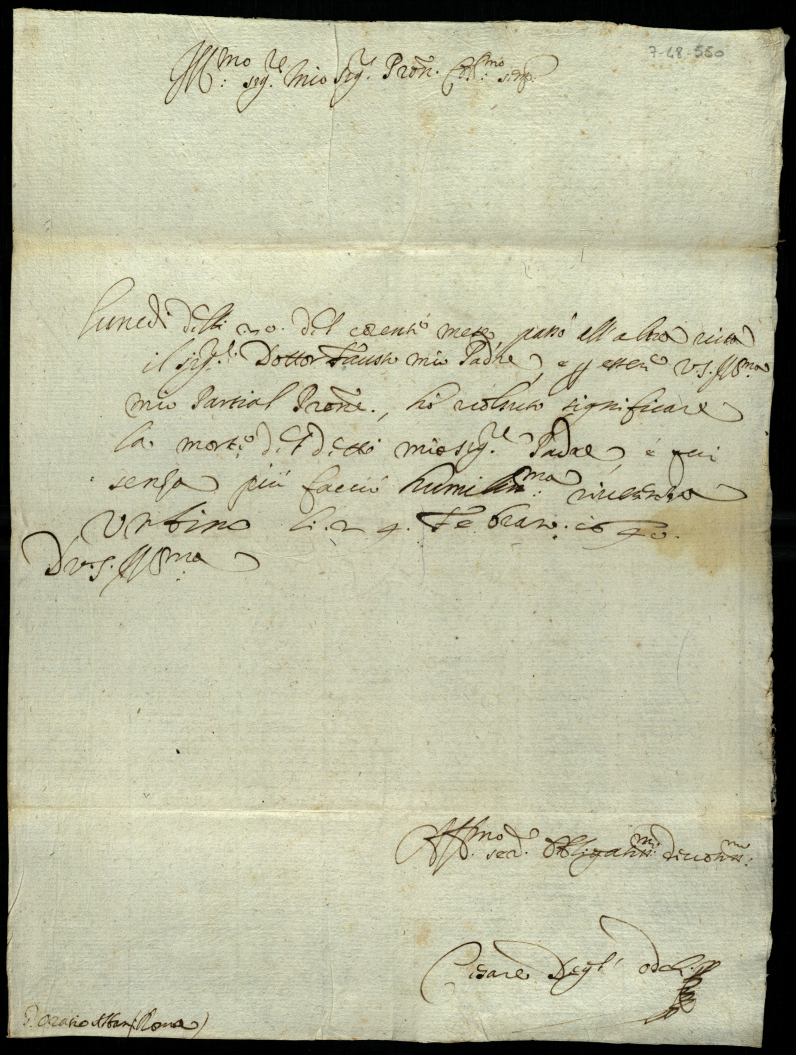 7-48-550
Ill:mo sig:re Mio sig:re Pron. Col:mo semp:
Lunedi delli 20. del corente mese, passò all'altra vita
il sig:r Dottor Fausto mio Padre, e p essere V.S. Ill:ma
mio Partial Prone., hò voluto significare
la morte del detto mio sig:re Padre, e qui
senza più faccio humilis:ma riverenza
Urbino li 24. Febraro. 1640.
D V.S. Ill:ma
Aff:mo ser:e Obligatiss:mo devotiss:mo
Cesare Degl' Oddi
S. Oratio Albani (Roma)